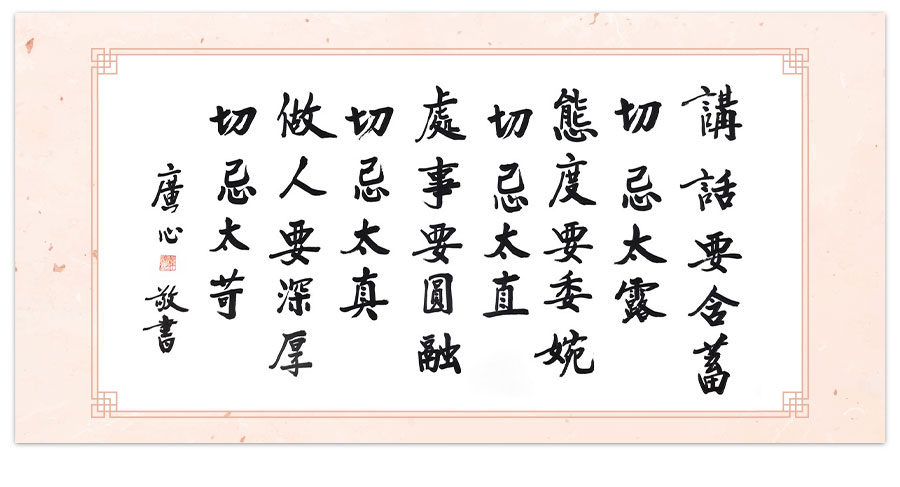 講話要含蓄
切忌太露
態度要委婉
切忌太直
處事要圓融
切忌太真
做人要深厚
切忌太苛
廣心 敬書